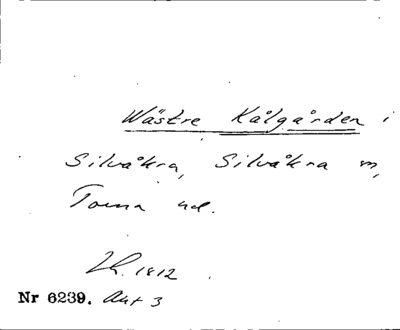 Wästre Kålgården i
Silvåkra, Silvåkra sn,
Torna hd.
Lk. 1812
Nr 6239. Akt 3